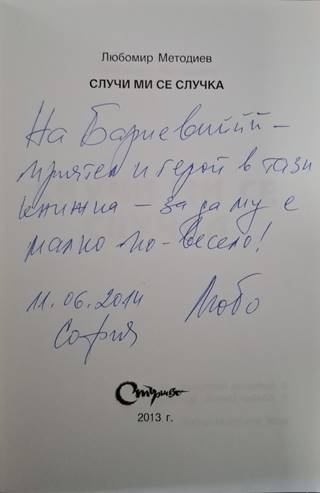 Любомир Методиев
СЛУЧИ МИ СЕ СЛУЧКА
На
приятел и герой в тази
книжка – за да му е
малко по-весело!
11.06.2014 Любо
София
Стигмати
2013 г.